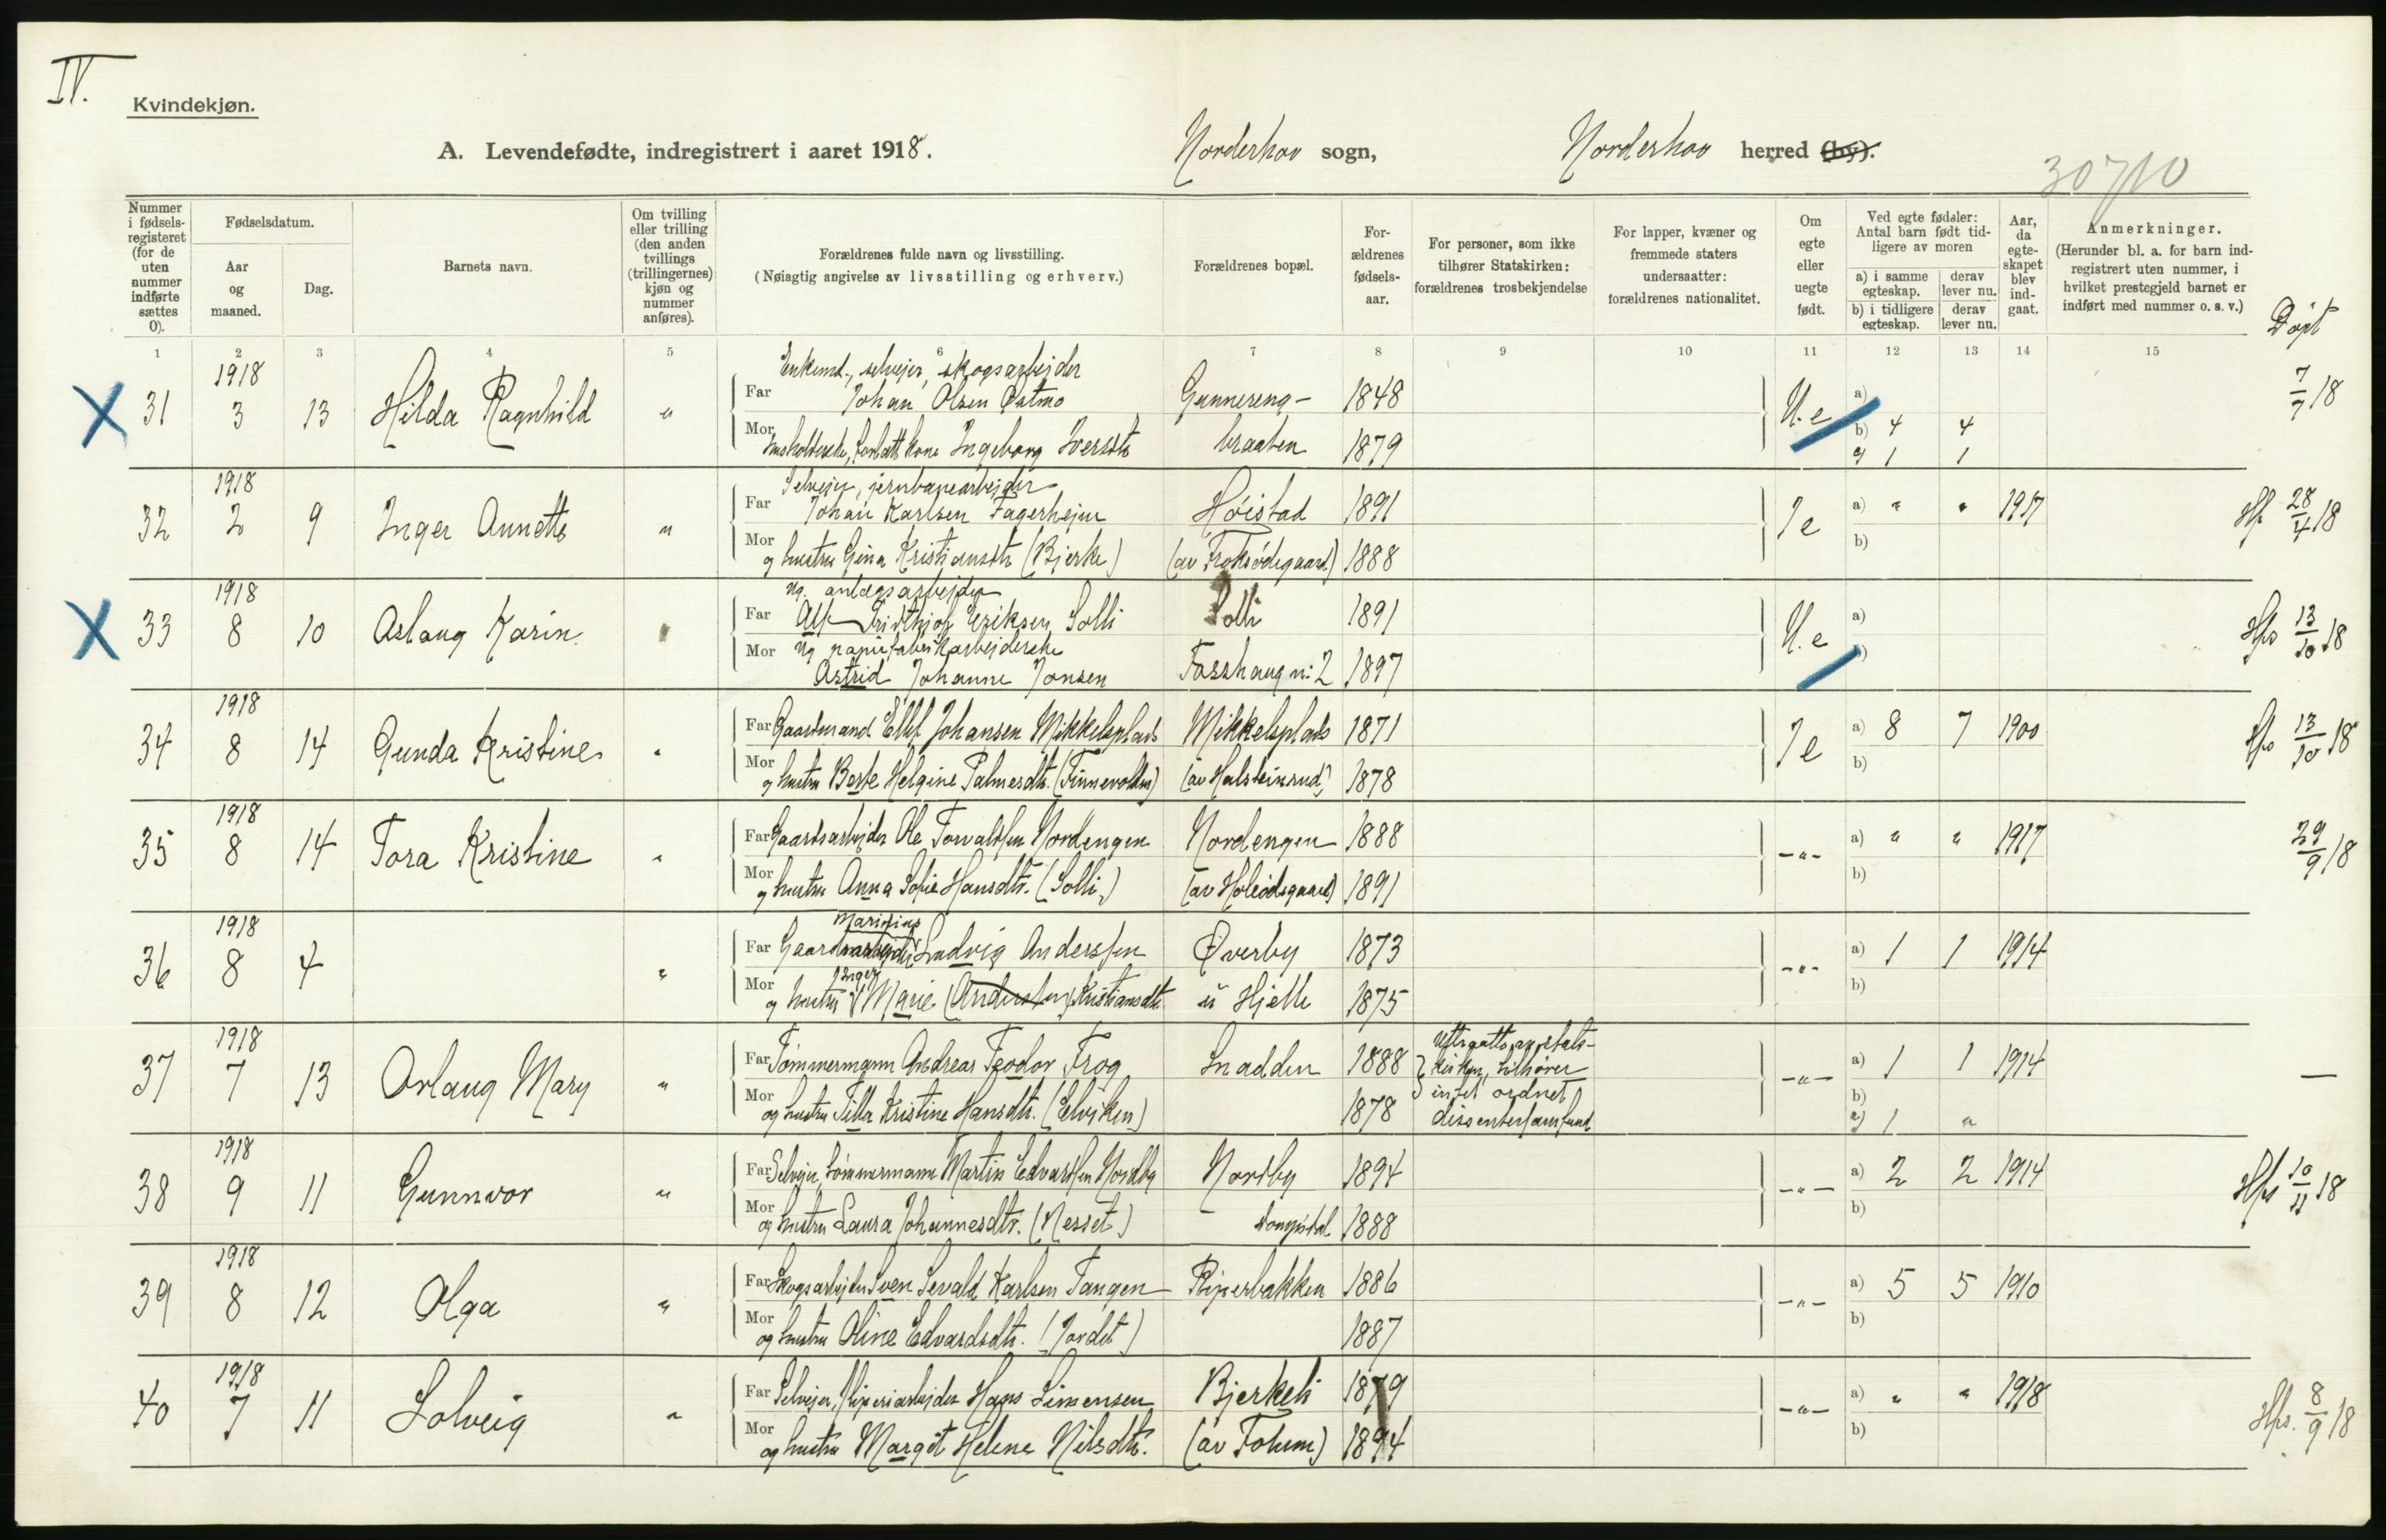 IV.
Kvindekjøn.
A. Levendefødte, indregistrert i aaret 1918.
Norderhov sogn,
Norderhov herred (by).
30710
Nummer i fødsels-registeret (for de uten nummer indførte sættes 0).
Fødselsdatum.
Aar og maaned.
Dag.
Barnets navn.
Om tvilling eller trilling (den anden tvillings (trillingernes) kjøn og nummer anføres).
Forældrenes fulde navn og livsstilling.
(Nøiagtig angivelse av livsstilling og erhverv.)
Forældrenes bopæl.
For-ældrenes fødsels-aar.
For personer, som ikke tilhører Statskirken: forældrenes trosbekjendelse
For lapper, kvæner og fremmede staters undersaatter: forældrenes nationalitet.
Om egte eller uegte født.
Ved egte fødsler: Antal barn født tid-ligere av moren
a) i samme egteskap.
derav lever nu.
b) i tidligere egteskap.
derav lever nu.
Aar, da egte-skapet blev ind-gaat.
Anmerkninger.
(Herunder bl. a. for barn ind-registrert uten nummer, i hvilket prestegjeld barnet er indført med nummer o. s. v.)
Døpt
1 2 3 4 5 6 7 8 9 10 11 12 13 14 15
X 31 1918 3 13 Hilda Ragnhild "
Enkemd., selveier, skogsarbeider
Far Johan Olsen Østmo Gunnereng- 1848 U.e a) 7/7 18
Mor Ingeborg Iversdtr braaten 1879 b) 4 4
1 1
32 1918 2 9 Inger Annette "
Selveier, jernbanearbeider
Far Johan Karlsen Fagerheim Høistad 1891 Ie a) " " 1917 28/4 18
Mor og hustru Gina Kristiansdtr (Bjerke) 1888 b)
X 33 1918 8 10 Aslaug Karin "
Ug. anlægsarbeider
Far Alf Fridthjof Eriksen Solli Solli 1891 U.e a) Hps 13/10 18
Mor Ug papirfabrikarbeiderske b)
Astrid Johanne Jonsen Fosshaug n: 2 1897
34 1918 8 14 Gunda Kristine "
Far Gaardmand Ellef Johansen Mikkelsplads Mikkelsplads 1871 Ie a) 8 7 1900 Hps 13/10 18
Mor og hustru Berte Helgine Palmesdtr. (Finnevolden) (av Halsteinrud) 1878 b)
35 1918 8 14 Tora Kristine "
Far Gaardsarbeider Ole Torvaldsen Nordengen Nordengen 1888 -"- a) " " 1917 29/9 18
Mor og hustru Anna Sofie Hansdtr. (Solli) 1891 b)
36 1918 8 4 "
Marinius
Far Ludvig Anderssen Øverby 1873 -"- a) 1 1 1914
Inger
Mor og hustru Marie (Anderssen) Kristiansdtr. u Hjelle 1875 b)
37 1918 7 13 Aslaug Mary "
Far Tømmermann Andreas Teodor Frog Snadden 1888 Uttraatt av stats-kirken, tilhører intet ordnet dissentersamfund -"- a) 1 1 1914 —
Mor og hustru Tilla Kristine Hansdtr. (Elviken) 1878 b)
1 "
38 1918 9 11 Gunnvor "
Far Selveier, tømmermann Martin Edvardsen Nordby Nordby 1894 -"- a) 2 2 1914 Hps 10/11 18
Mor og hustru Laura Johannesdtr. (Nesset) 1888 b)
39 1918 8 12 Olga "
Far Skogsarbeider Sven Servald Karlsen Tangen Piperbakken 1886 -"- a) 5 5 1910
Mor og hustru Oline Edvardsdtr. (Jordet) 1887 b)
40 1918 7 11 Solveig "
Far Selveier, sliperiarbeider Hans Simensen Bjerkeli 1879 -"- a) " " 1918 Hps. 8/9 18
Mor og hustru Margit Helene Nilsdtr. 1894 b)